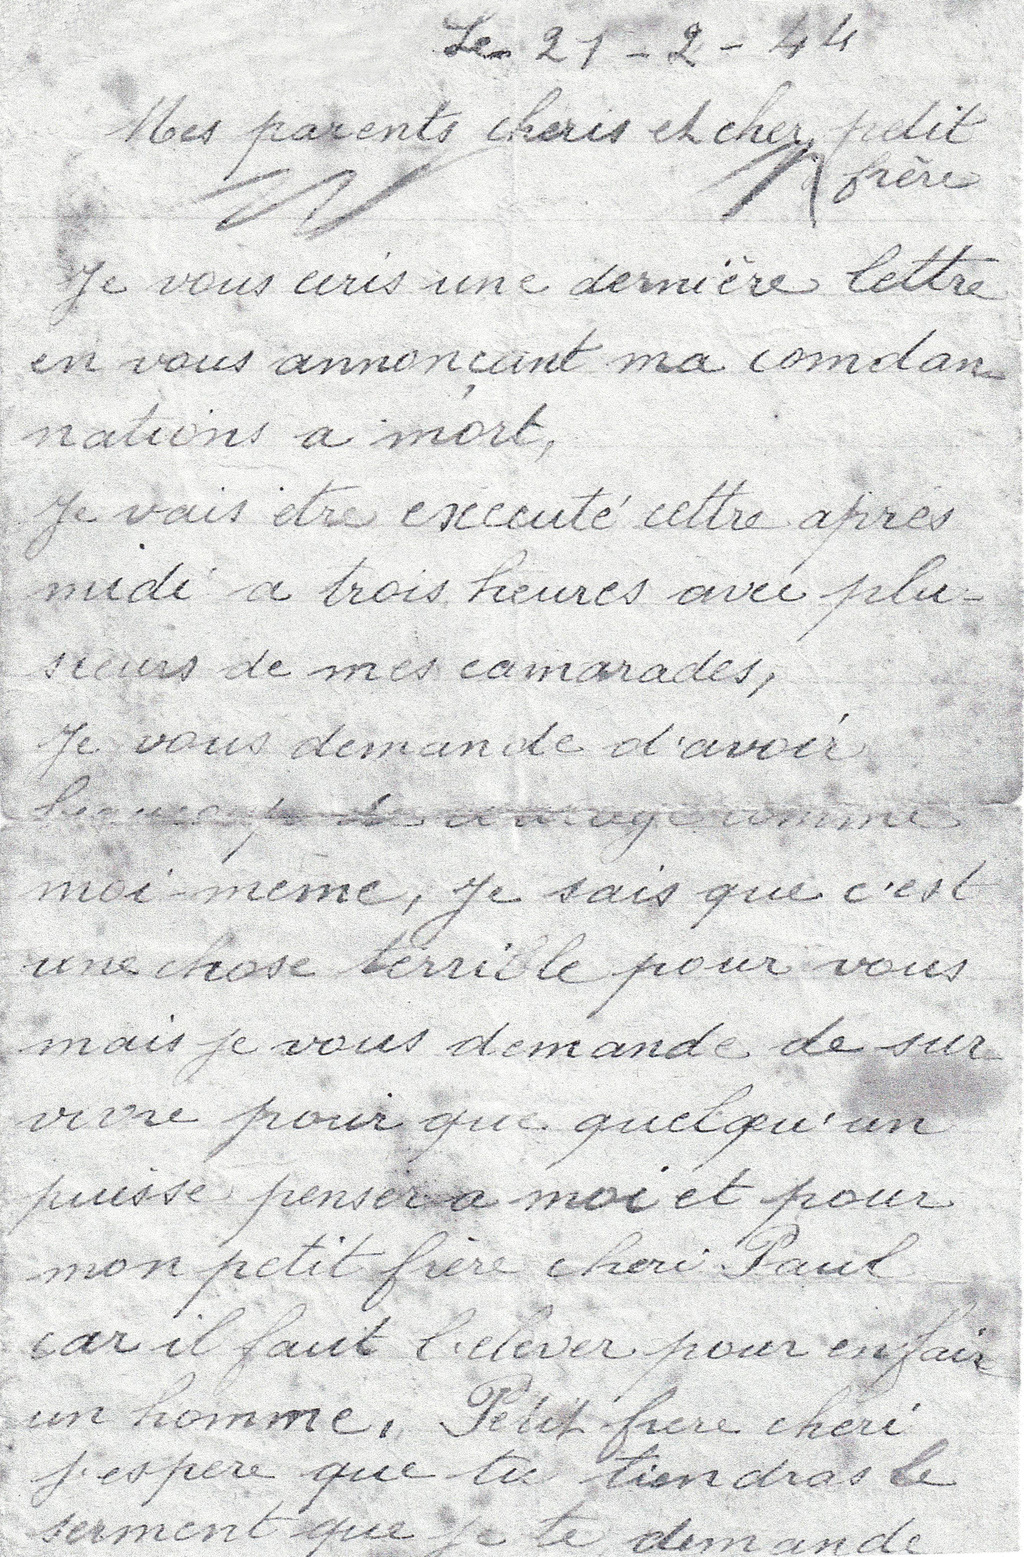 Le 21-2-44
Mes parents cheris et cher petit
frère
Je vous ecris une dernière lettre
en vous annonçant ma comdan-
nations a mort,
Je vais etre executé cettre après
midi a trois heures avec plu-
sieurs de mes camarades,
Je vous demande d'avoir
beaucoup de courage comme
moi-même, Je sais que c'est
une chose terrible pour vous
mais je vous demande de sur
vivre pour que quelqu'un
puisse penser a moi et pour
mon petit frère cheri Paul
car il faut l'elever pour en fair
un homme, Petit frere cheri
j'espere que tu tiendras le
serment que je te demande